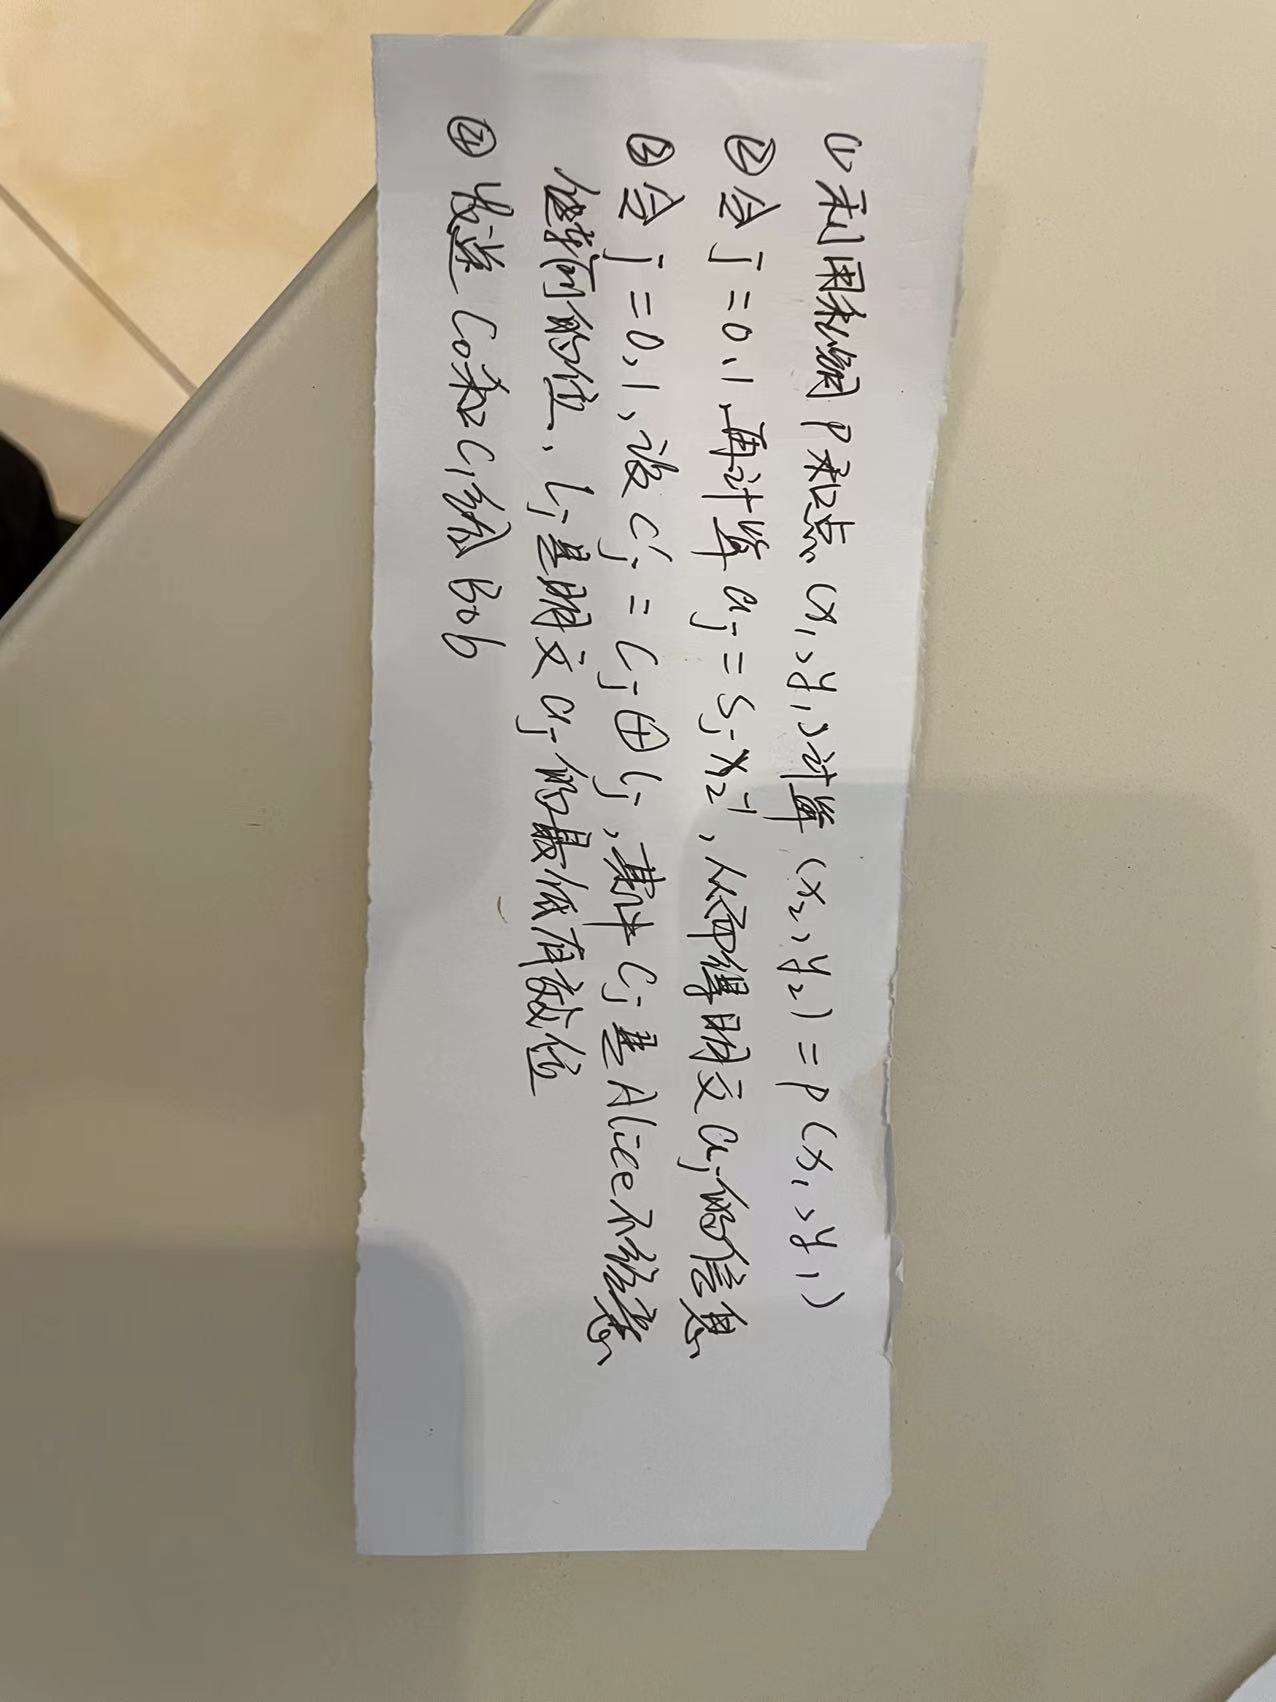 (1) 利用私钥 P 和点 (x₁, y₁) 计算 (x₂, y₂) = P(x₁, y₁)
② 令 j = 0、1, 再计算 aⱼ = Sⱼ x₂⁻¹, 从而得明文 aⱼ 的信息
③ 令 j = 0, 1, 设 C'ⱼ = Cⱼ ⊕ lⱼ, 其中 Cⱼ 是 Alice 不经意
传输的位, lⱼ 是明文 aⱼ 的最低有效位
④ 发送 C₀ 和 C₁ 给 Bob